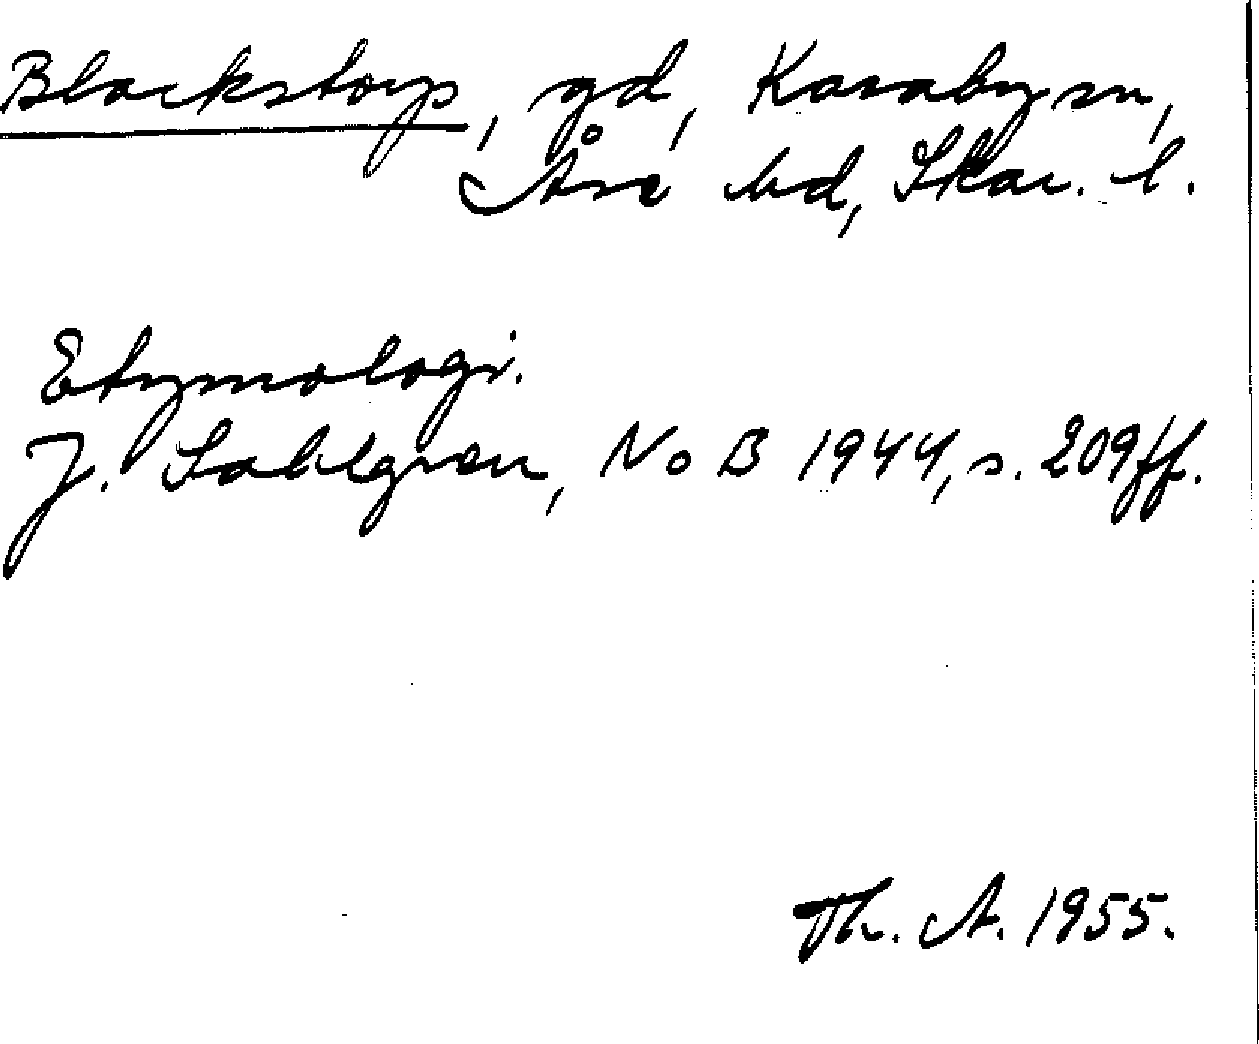 Blackstorp, gd, Karaby sn,
Åse hd, Skar. l.
Etymologi.
J. Sahlgren, NoB 1944, s. 209 ff.
Th. A. 1955.